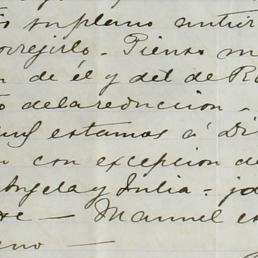 su plano
correjirlo - Pienso
de él y del de
de la reduccion -
estamos á Di
con excepcion de
Angela y Julia =
— Manuel es